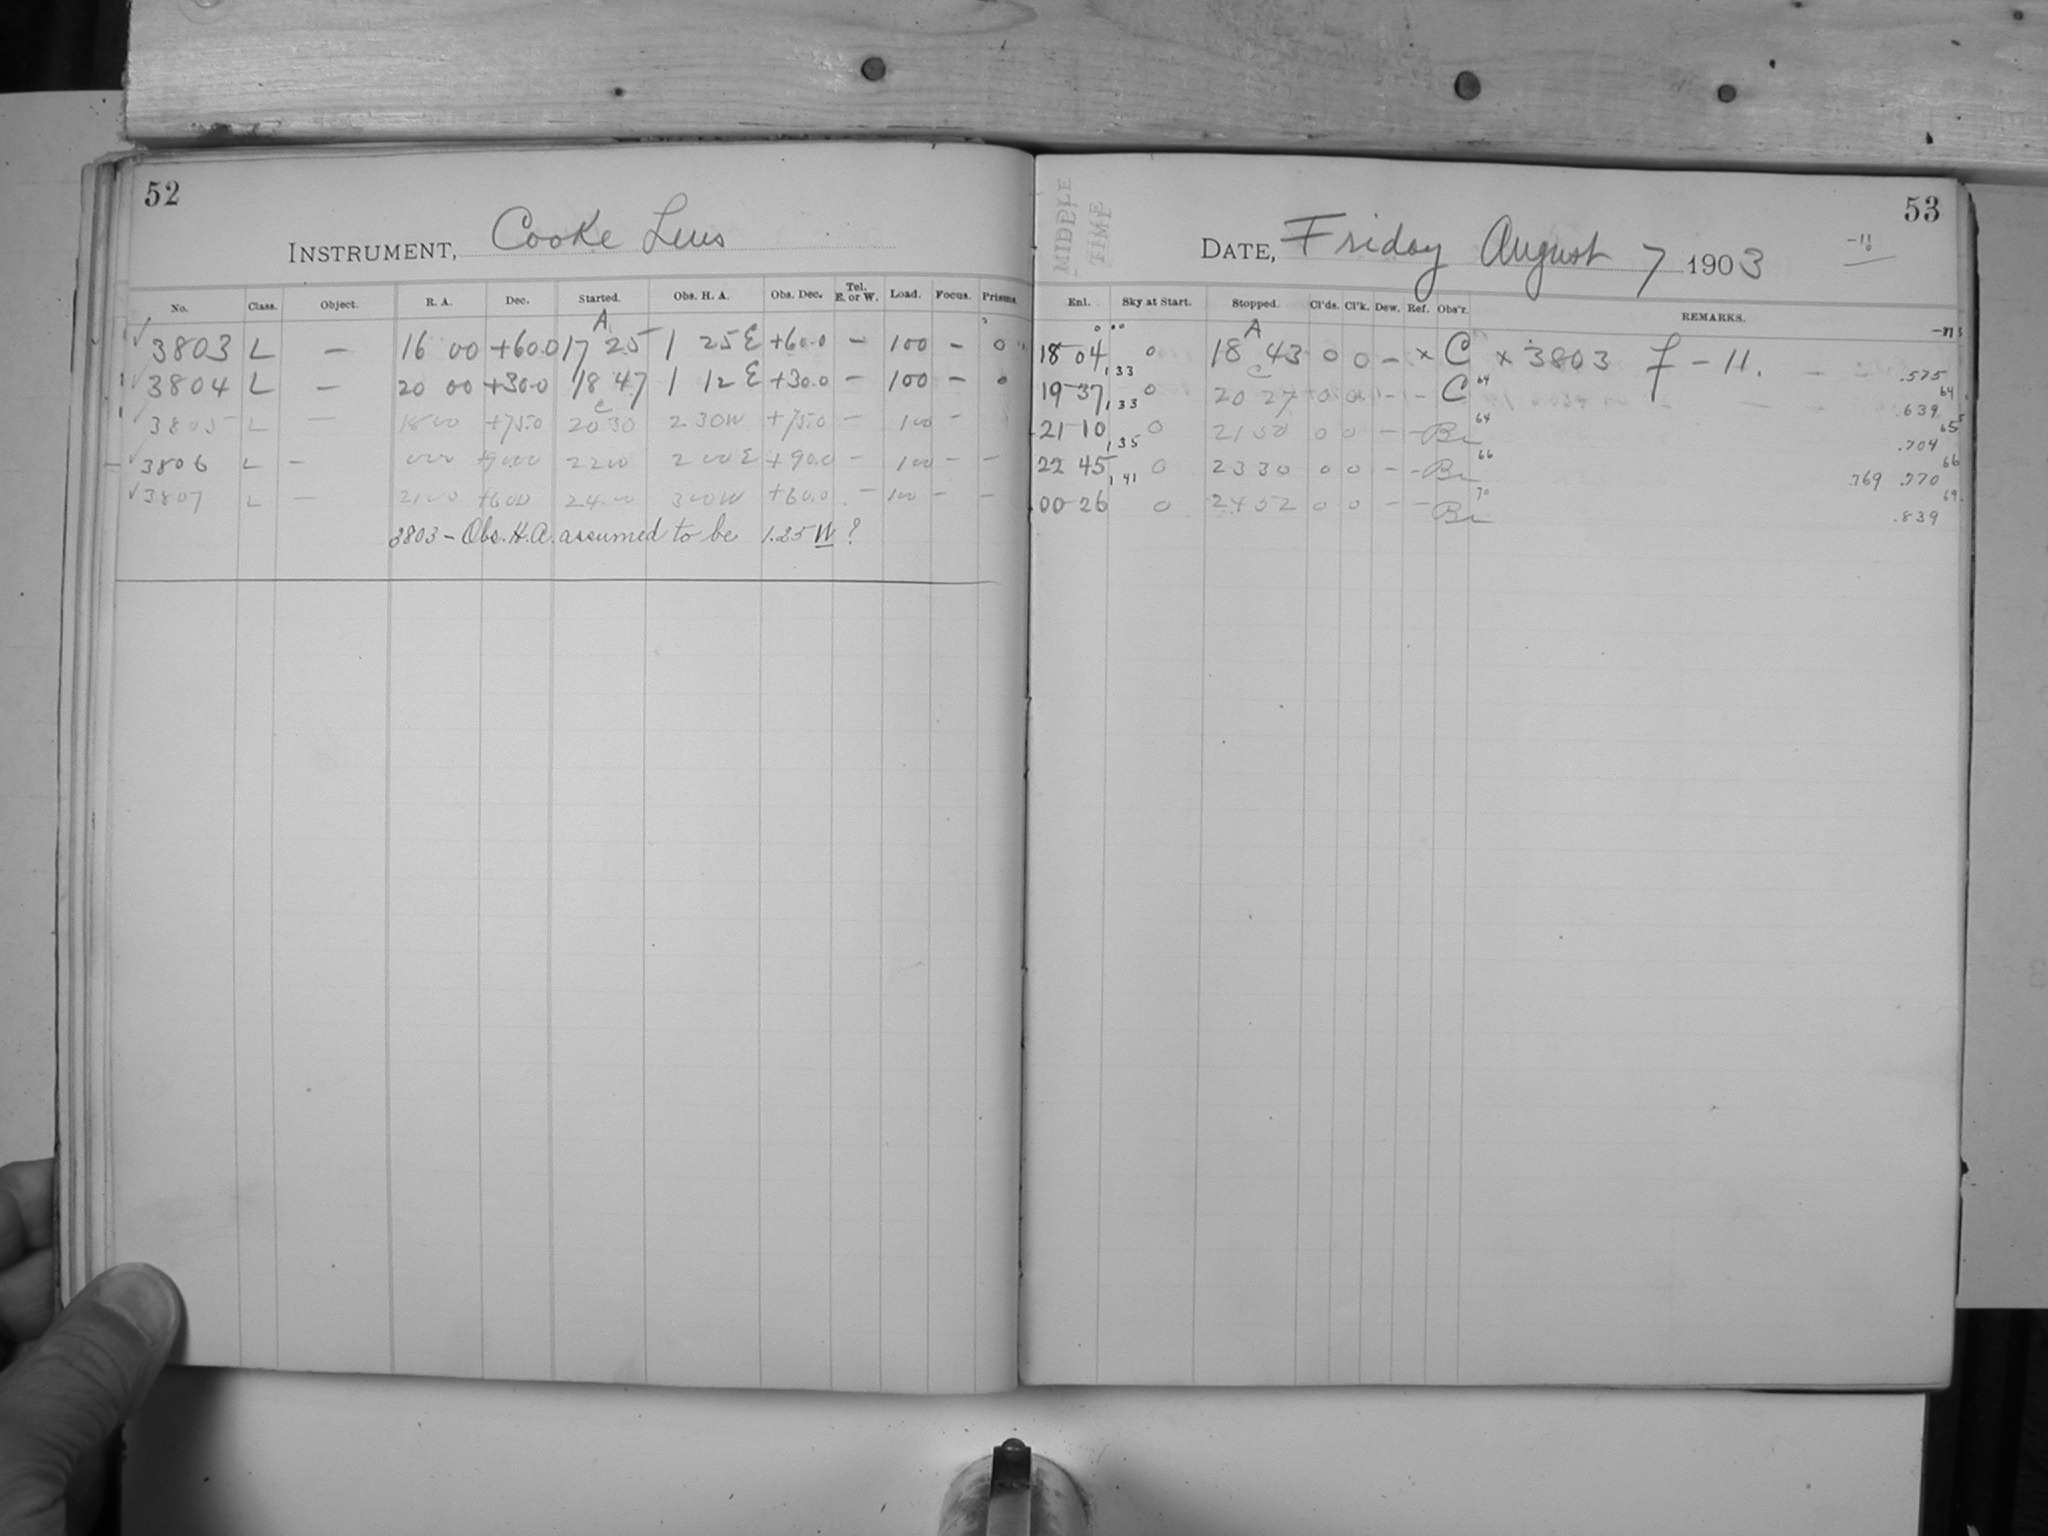 52
INSTRUMENT, Cooke Lens
No. Class. Object. R. A. Dec. Started. Obs. H. A. Obs. Dec. Tel. E. or W. Load. Focus. Prisms.
A
✓ 3803 L — 16 00 +60.0 17 25 1 25 E +60.0 — 100 — 0
✓ 3804 L — 20 00 +30.0 18 47 1 12 E +30.0 — 100 — 0
c
✓ 3805 L — 18 00 +75.0 20 30 2 30 W +75.0 — 100 —
✓ 3806 L — 0 00 +90.00 22 00 2 00 E +90.0 — 100 — —
✓ 3807 L — 21 00 +60.0 24 00 3 00 W +60.0 — 100 — —
3803 – Obs. H.A. assumed to be 1.25 W ?
53
MIDDLE
TIME
DATE, Friday August 7 1903
-11
Enl. Sky at Start. Stopped. Cl'ds. Cl'k. Dew. Ref. Obs'r. REMARKS.
A
18 04 0 18 43 0 0 — × C × 3803 f – 11.
1 33 .575
C
19 37 0 20 27 0 0 - - C 64 64
1 33 .639
21 10 0 21 50 0 0 — - Br 64 65
1 35 .704
22 45 0 23 30 0 0 - - Br 66 66
1 41 .769 .770
00 26 0 24 52 0 0 - - Br 70 69
.839